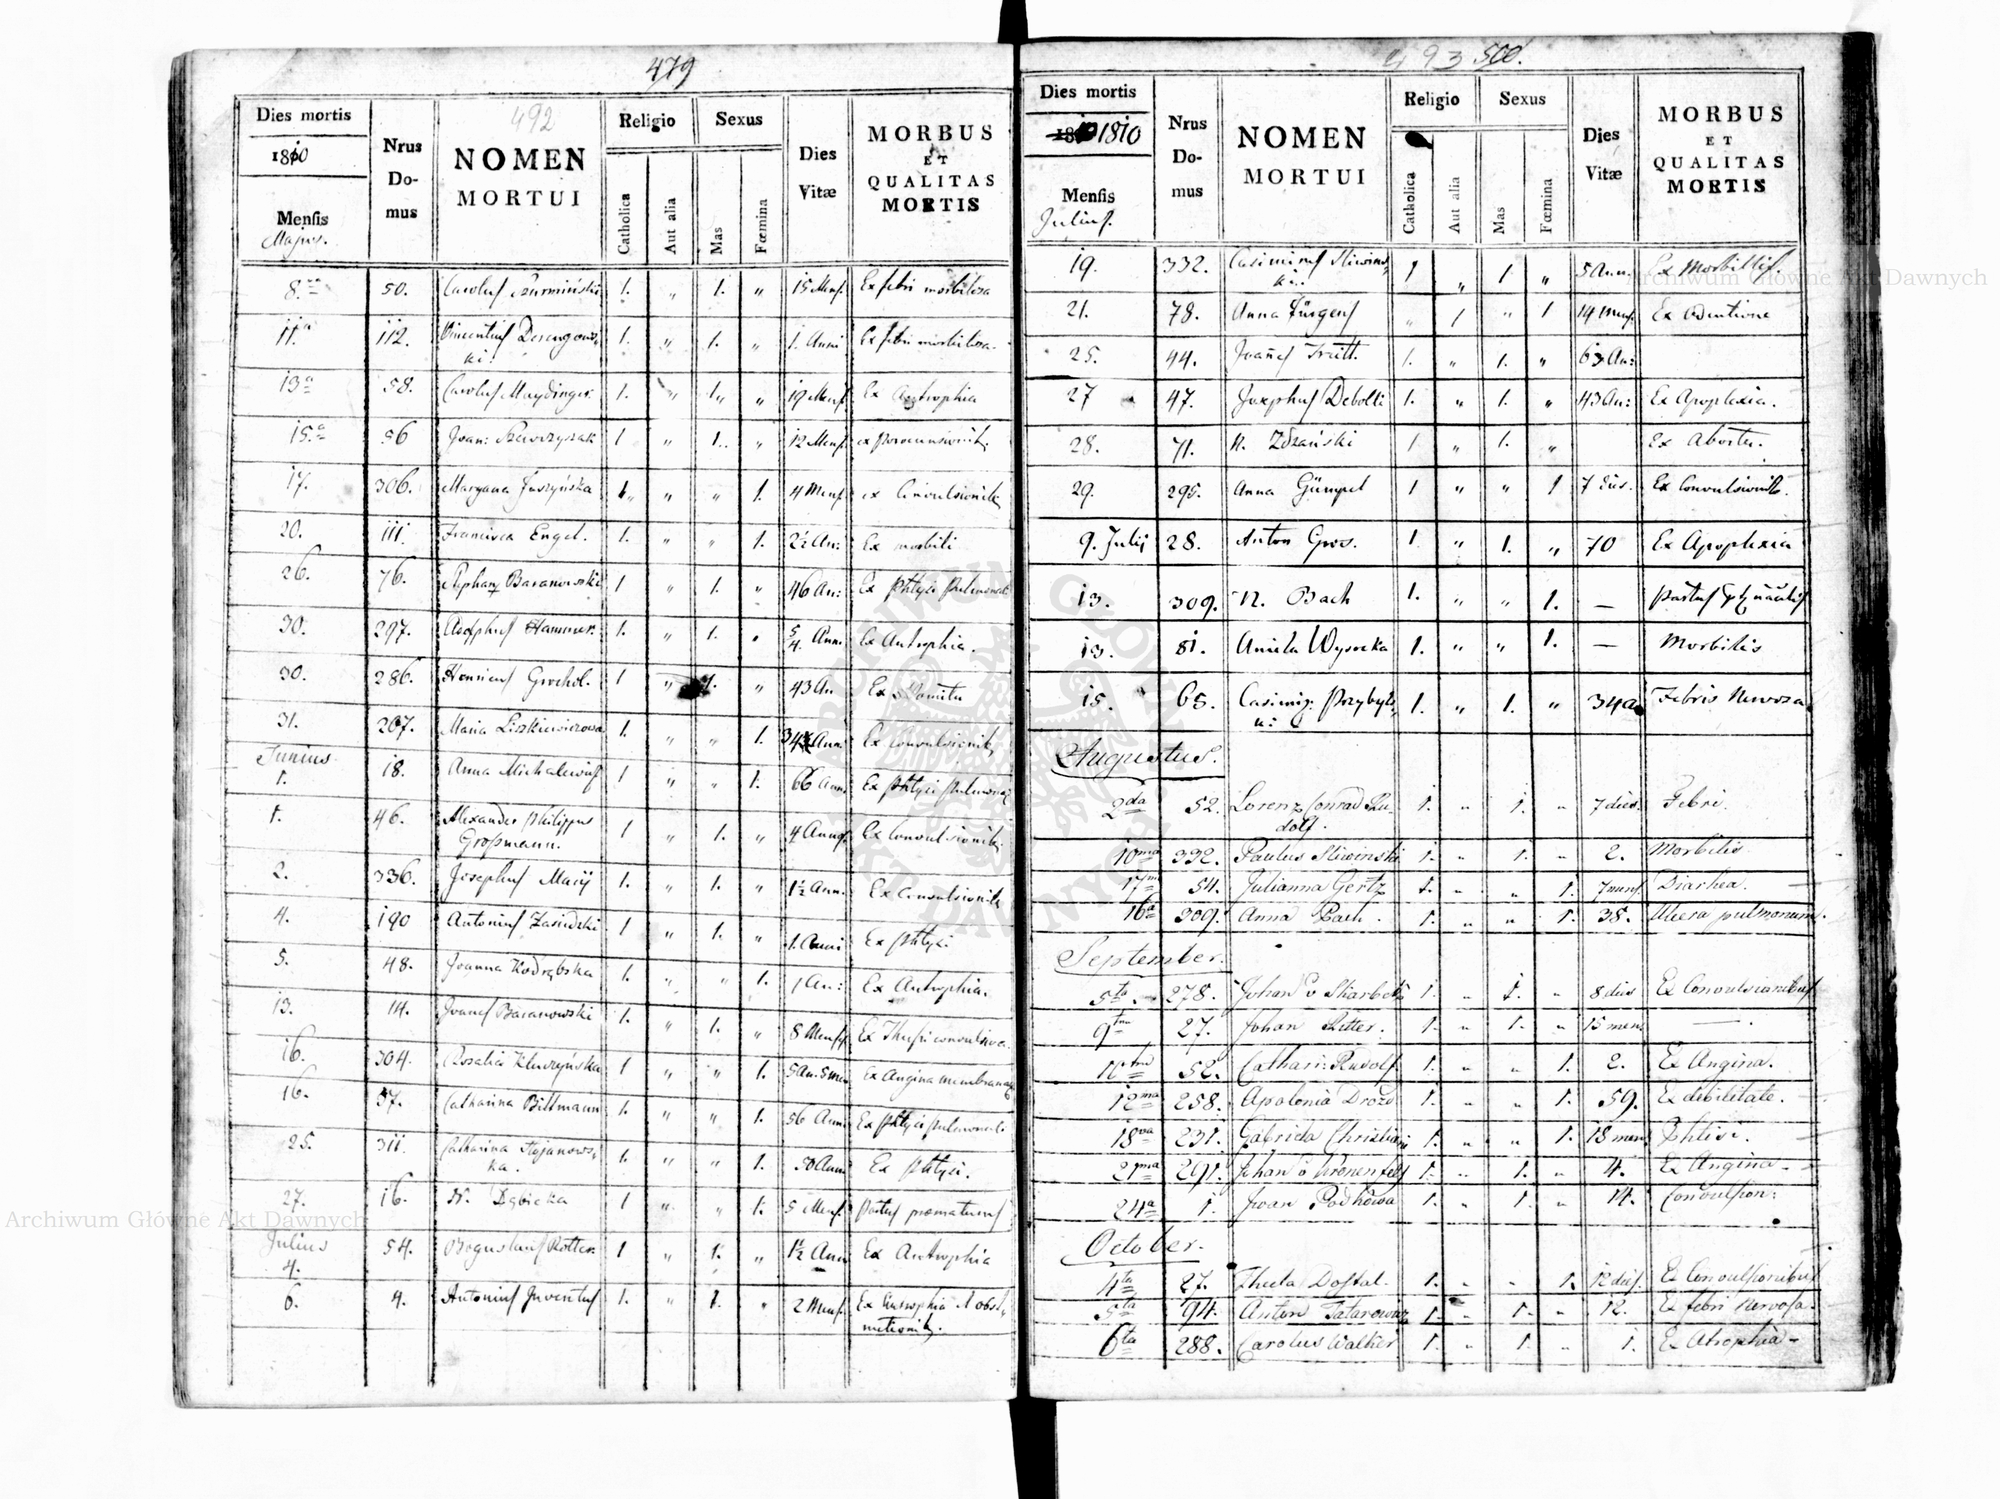 479
492
Dies mortis
1810
Mensis
Majus.
Nrus
Do-
mus
NOMEN
MORTUI
Religio
Catholica
Aut alia
Sexus
Mas
Fœmina
Dies
Vitæ
MORBUS
ET
QUALITAS
MORTIS
8va 50. Carolus Szurmiński 1. " 1. " 15 Mens. Ex febri morbilosa
11a 112. Vincentius 1. " 1. " 1. Anni Ex febri morbilosa
ki.
13a 58. Carolus Maydinger. 1. " 1. " 19 Mens. Ex Antrophia
15a 56 Joan: Szewczyszak 1 " 1. " 12 Mens.
17. 306. Maryana 1. " " 1. 4 Mens. ex Convulsionib.
20. 111. Francisca Engel. 1. " " 1. 2½ An: Ex morbili
26. 76. Stephan Baranowski 1 " 1. " 46 An: Ex Phtysi pulmonali
30. 297. Adolphus Hammer. 1. " 1. " 5/4 Ann. Ex Antrophia.
30. 286. Henricus Grochol. 1 " 1. " 43 An Ex Vomitu
31. 267. Maria Liszkiewiczowa 1. " " 1. 34 Anni Ex Convulsionib.
Junius
1. 18. Anna 1 " " 1. 66 Ann. Ex Phtysi pulmonali
1. 46. Alexander Philippus 1 " 1. " 4 Annos. Ex Convulsionib.
Grossmann.
2. 336. Josephus Macij 1. " 1. " 1½ Ann. Ex Convulsionib
4. 190 Antonius Zasidzki 1 " 1. " 1. Anni Ex Phtysi
5. 48. Joanna Kodrębska 1. " " 1. 1 An: Ex Antrophia.
13. 14. Joanes Baranowski 1. " 1. " 8 Mens. Ex Thusi convulsiva.
16. 304. Rosalia Kluczyńska 1 " " 1. 5 An. 5 men Ex Angina membranacea
16. 37. Catharina Bittmann 1. " " 1. 56 Ann. Ex Phtysi pulmonali
25. 311. Catharina Stojanows- 1. " " 1. 50 Ann Ex Phtysi.
ka.
27. 16. N. Dębicka 1 " " 1. 5 Mens. Partus prematurus
Julius
4. 54. Boguslaus Rotter. 1 " 1. " 1½ Ann Ex Antrophia
6. 4. Antonius Juventus 1. " 1. " 2 Mens. Ex Antrophia
493 500.
Dies mortis
1810
Mensis
Julius.
Nrus
Do-
mus
NOMEN
MORTUI
Religio
Catholica
Aut alia
Sexus
Mas
Fœmina
Dies
Vitæ
MORBUS
ET
QUALITAS
MORTIS
19. 332. Casimirus Sliwins- 1 " 1. " 5 Ann. Ex Morbillis.
ki.
21. 78. Anna Jürgens " 1 " 1 14 Mens. Ex Dentitione
25. 44. Joanes 1. " 1. " 63 An:
27 47. Josephus Debolli 1. " 1. " 43 An: Ex Apoplexia.
28. 71. N. Zdzański 1 " 1. " Ex Abortu.
29. 295. Anna Gümpel 1 " " 1 7 Ex Convulsionib.
9. Julij 28. Anton Gros. 1. " 1. " 70 Ex Apoplexia
13. 309. N. Bach 1. " " 1. —
13. 81. Aniela Wysocka 1. " " 1. — Morbilis
15. 65. Casimiz. Przybyls- 1. " 1. " 34 a. Febris Nervosa
ki
Augustus.
2da 52. Lorenz Conrad Ru- 1. " 1. " 7 dies. Febri.
dolf.
10ma 332. Paulus Sliwinski 1. " 1. " 2. Morbilis
17ma 54. Julianna Gertz 1. " " 1. 7 mens Diarhea.
16a 309. Anna Bach. 1. " " 1. 38. Ulcera pulmonum.
September.
5ta 278. Johan v Skarbek 1. " 1. " 8 dies Ex Convulsionibus
9na 27. Johan Ritter. 1. " 1. " 15 mens —
10ma 52. Cathari: Rudolf 1. " " 1. 2. Ex Angina.
12ma 258. Apolonia Drozd 1. " " 1. 59. Ex debilitate.
18va 231. Gabriela Christiani 1. " " 1. 18 mens Phtisi.
21ma 291. Johan v Kronenfels 1. " 1. " 4. Ex Angina
24a 1. Joan Podhowa 1. " 1. " 14. Convulsion:
October.
4ta 27. Thecla Dostal. 1. " " 1. 12 dies. Ex Convulsionibus
5ta 94. Anton Tatarowicz 1. " 1. " 12. Ex febri Nervosa.
6ta 288. Carolus Walther 1. " 1. " 1. Ex Atrophia
Archiwum Główne Akt Dawnych
Archiwum Główne Akt Dawnych
ARCHIWUM GŁÓWNE AKT DAWNYCH